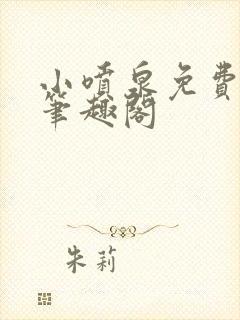 小喷泉免费
笔趣阁
朱莉